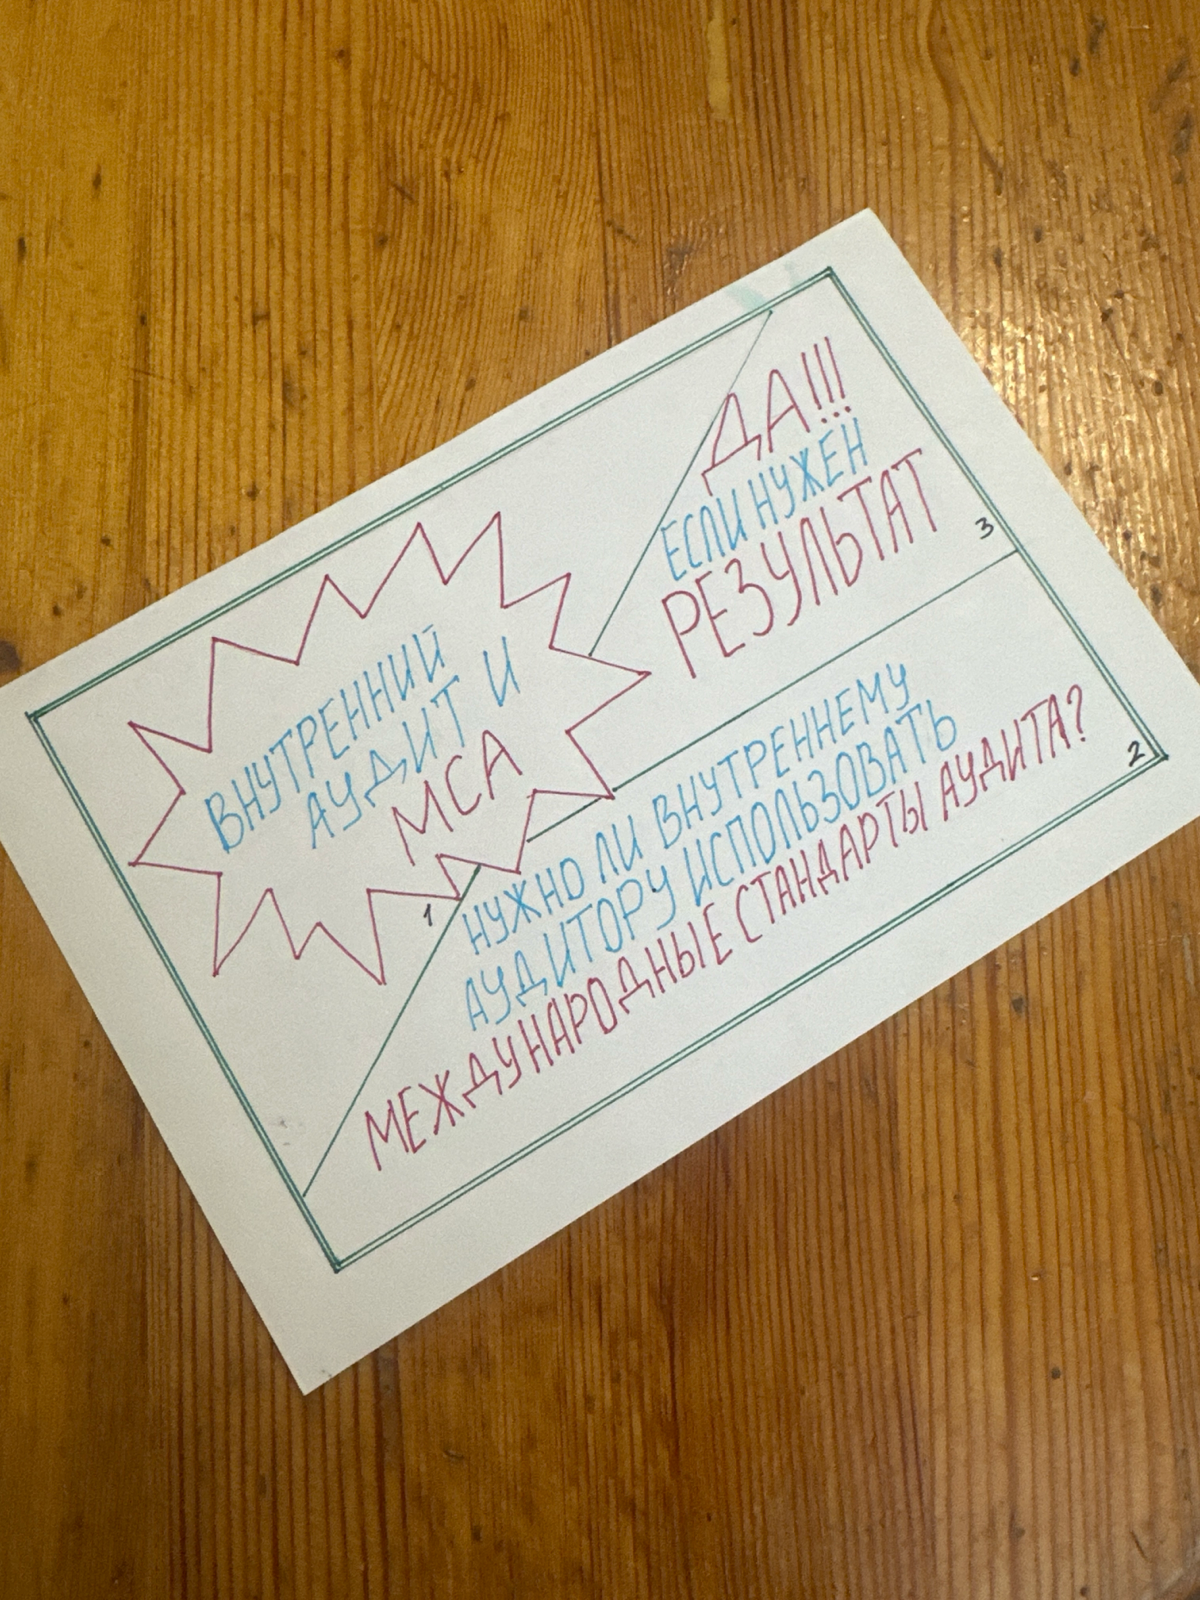 ВНУТРЕННИЙ
АУДИТ И
МСА
1
НУЖНО ЛИ ВНУТРЕННЕМУ
АУДИТОРУ ИСПОЛЬЗОВАТЬ
МЕЖДУНАРОДНЫЕ СТАНДАРТЫ АУДИТА?
2
ДА!!!
ЕСЛИ НУЖЕН
РЕЗУЛЬТАТ
3